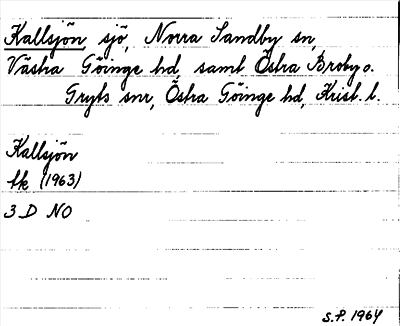 Kallsjön, sjö, Norra Sandby sn,
Västra Göinge hd, samt Östra Broby o.
Gryts snr, Östra Göinge hd, Krist. l.
Kallsjön
tk (1963)
3 D NO
S.P. 1964